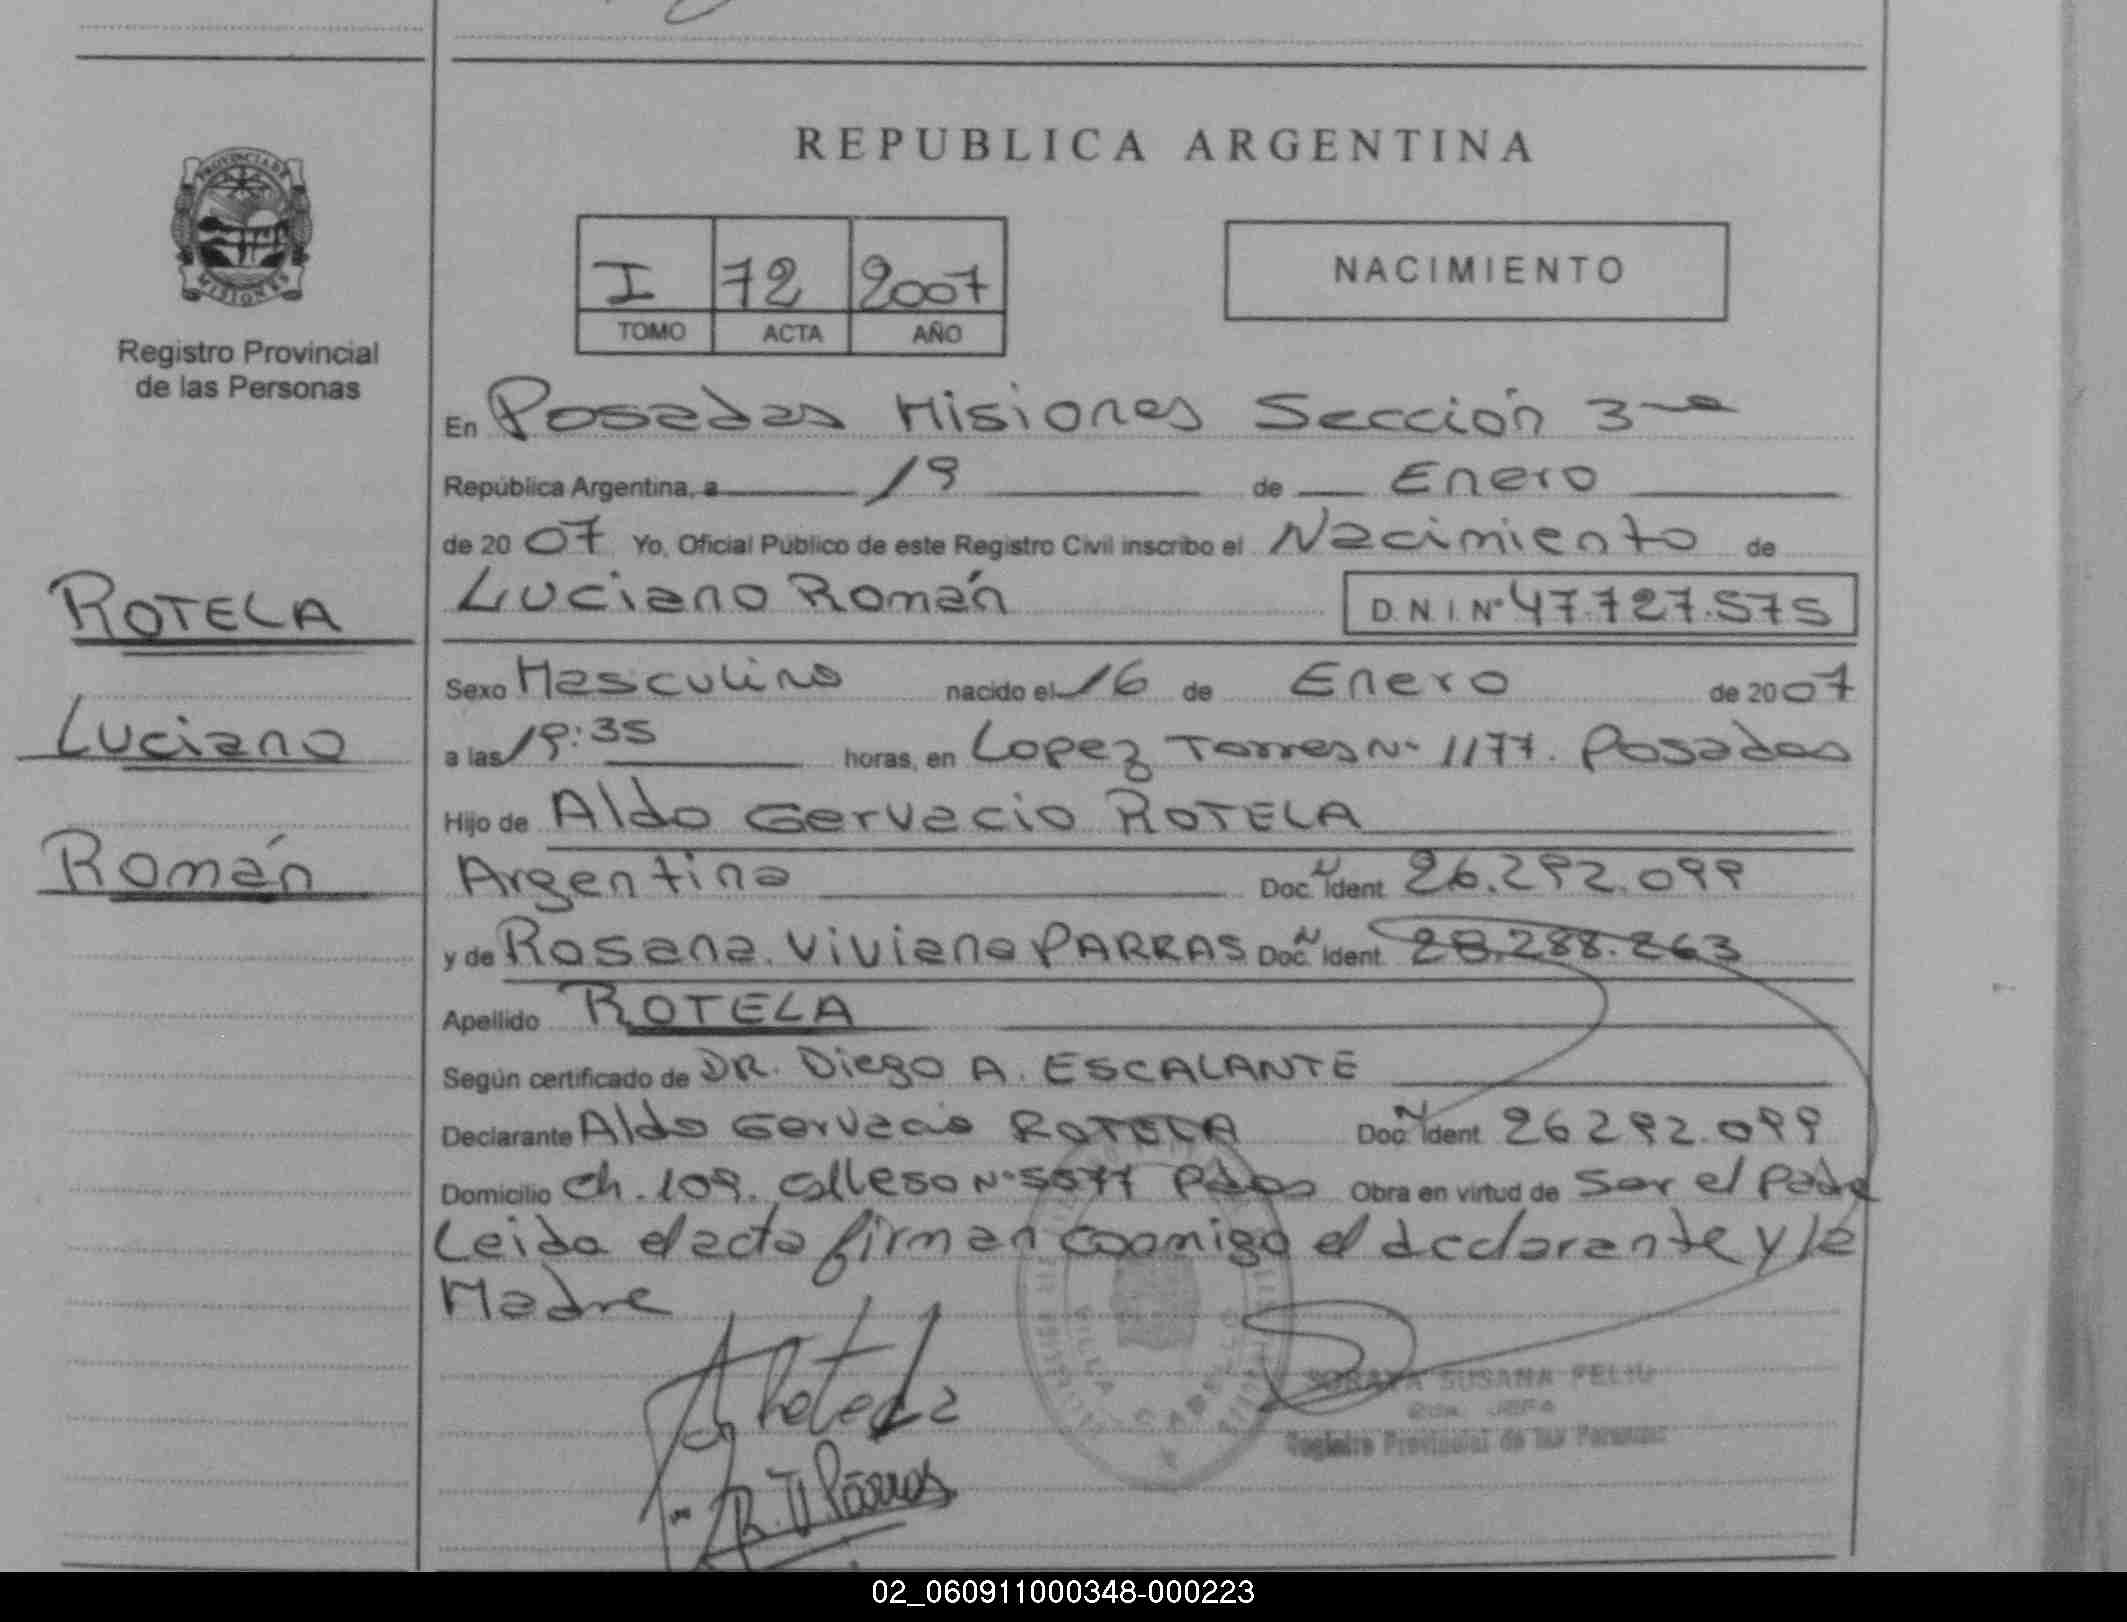 REPUBLICA ARGENTINA
PROVINCIA DE
MISIONES
Registro Provincial
de las Personas
I 72 2007
TOMO ACTA AÑO
NACIMIENTO
En Posadas Misiones Sección 3ra
República Argentina, a 19 de Enero
de 2007 Yo, Oficial Público de este Registro Civil inscribo el Nacimiento de
Luciano Román D.N.I.Nº 47.727.575
ROTELA
Luciano
Román
Sexo Masculino nacido el 16 de Enero de 2007
a las 19:35 horas, en Lopez Torres Nº 1177. Posadas
Hijo de Aldo Gervacio ROTELA
Argentina Doc. N Ident. 26.292.099
y de Rosana Viviana PARRAS Doc. N Ident. 28.288.263
Apellido ROTELA
Según certificado de DR. Diego A. ESCALANTE
Declarante Aldo Gervacio ROTELA Doc. N Ident. 26292.099
Domicilio Ch. 109. Nº 5577 Pdas Obra en virtud de Ser el Padre
Leida el acta firman conmigo el declarante y la
Madre
ARotela
R. V. Parras
VILLA CABELLO
SORAYA SUSANA FELIU
JEFA
Registro Provincial de las Personas
02_060911000348-000223